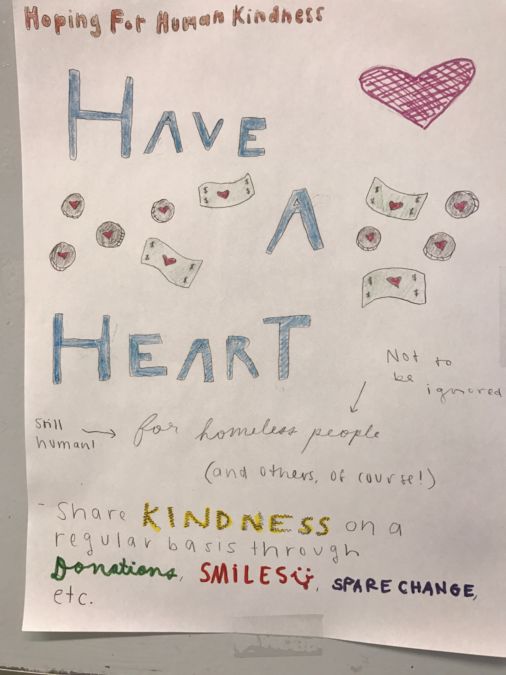 Hoping For Human Kindness
HAVE
A
HEART
Not to
be
ignored
Still
human!
for homeless people
(and others, of course!)
- Share KINDNESS on a
regular basis through
Donations, SMiLES, SPARE CHANGE,
etc.